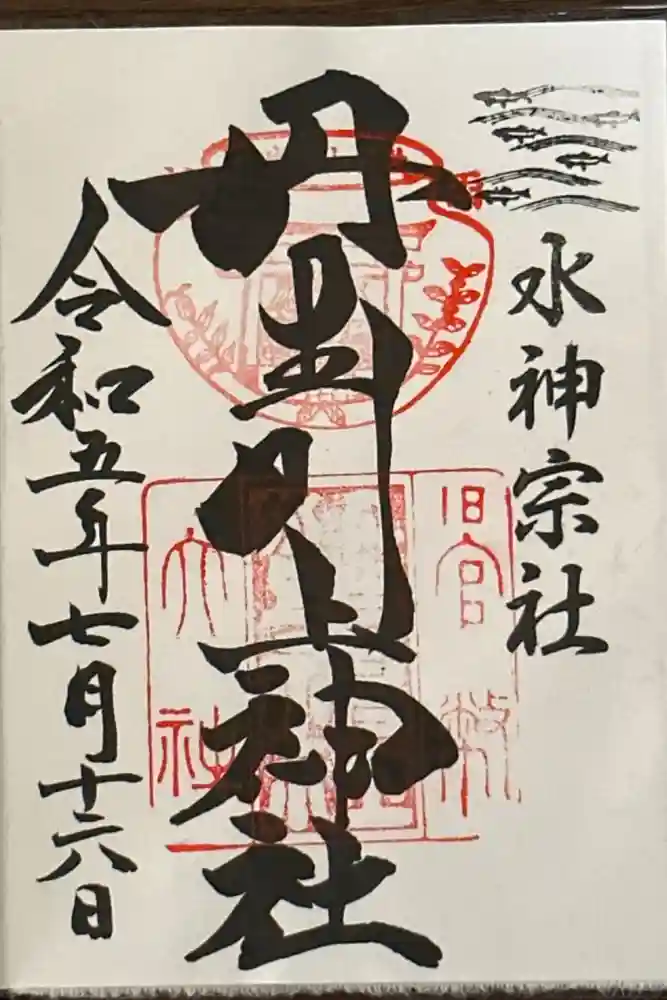 水神宗社
丹生川上神社
令和五年七月十六日
旧官幣
大社